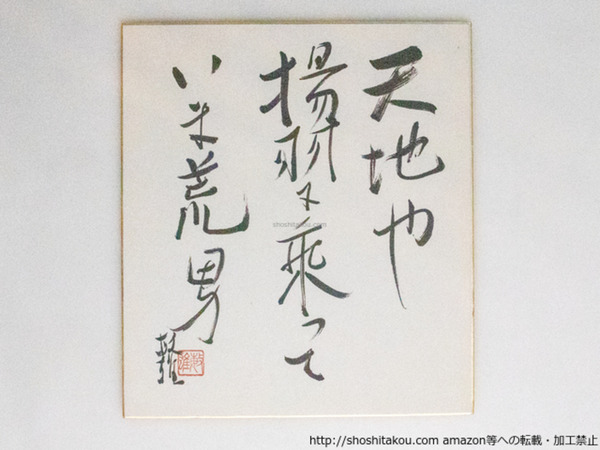 天地や
揚羽に乗って
いま荒男
shoshitakou.com
http://shoshitakou.com amazon等への転載・加工禁止